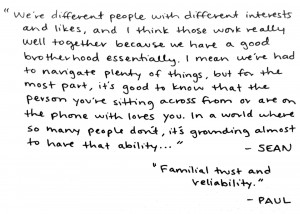 "We're different people with different interests
and likes, and I think those work really
well together because we have a good
brotherhood essentially. I mean we've had
to navigate plenty of things, but for the
most part, it's good to know that the
person you're sitting across from or are on
the phone with loves you. In a world where
so many people don't, it's grounding almost
to have that ability..." - SEAN
"Familial trust and
reliability."
- PAUL